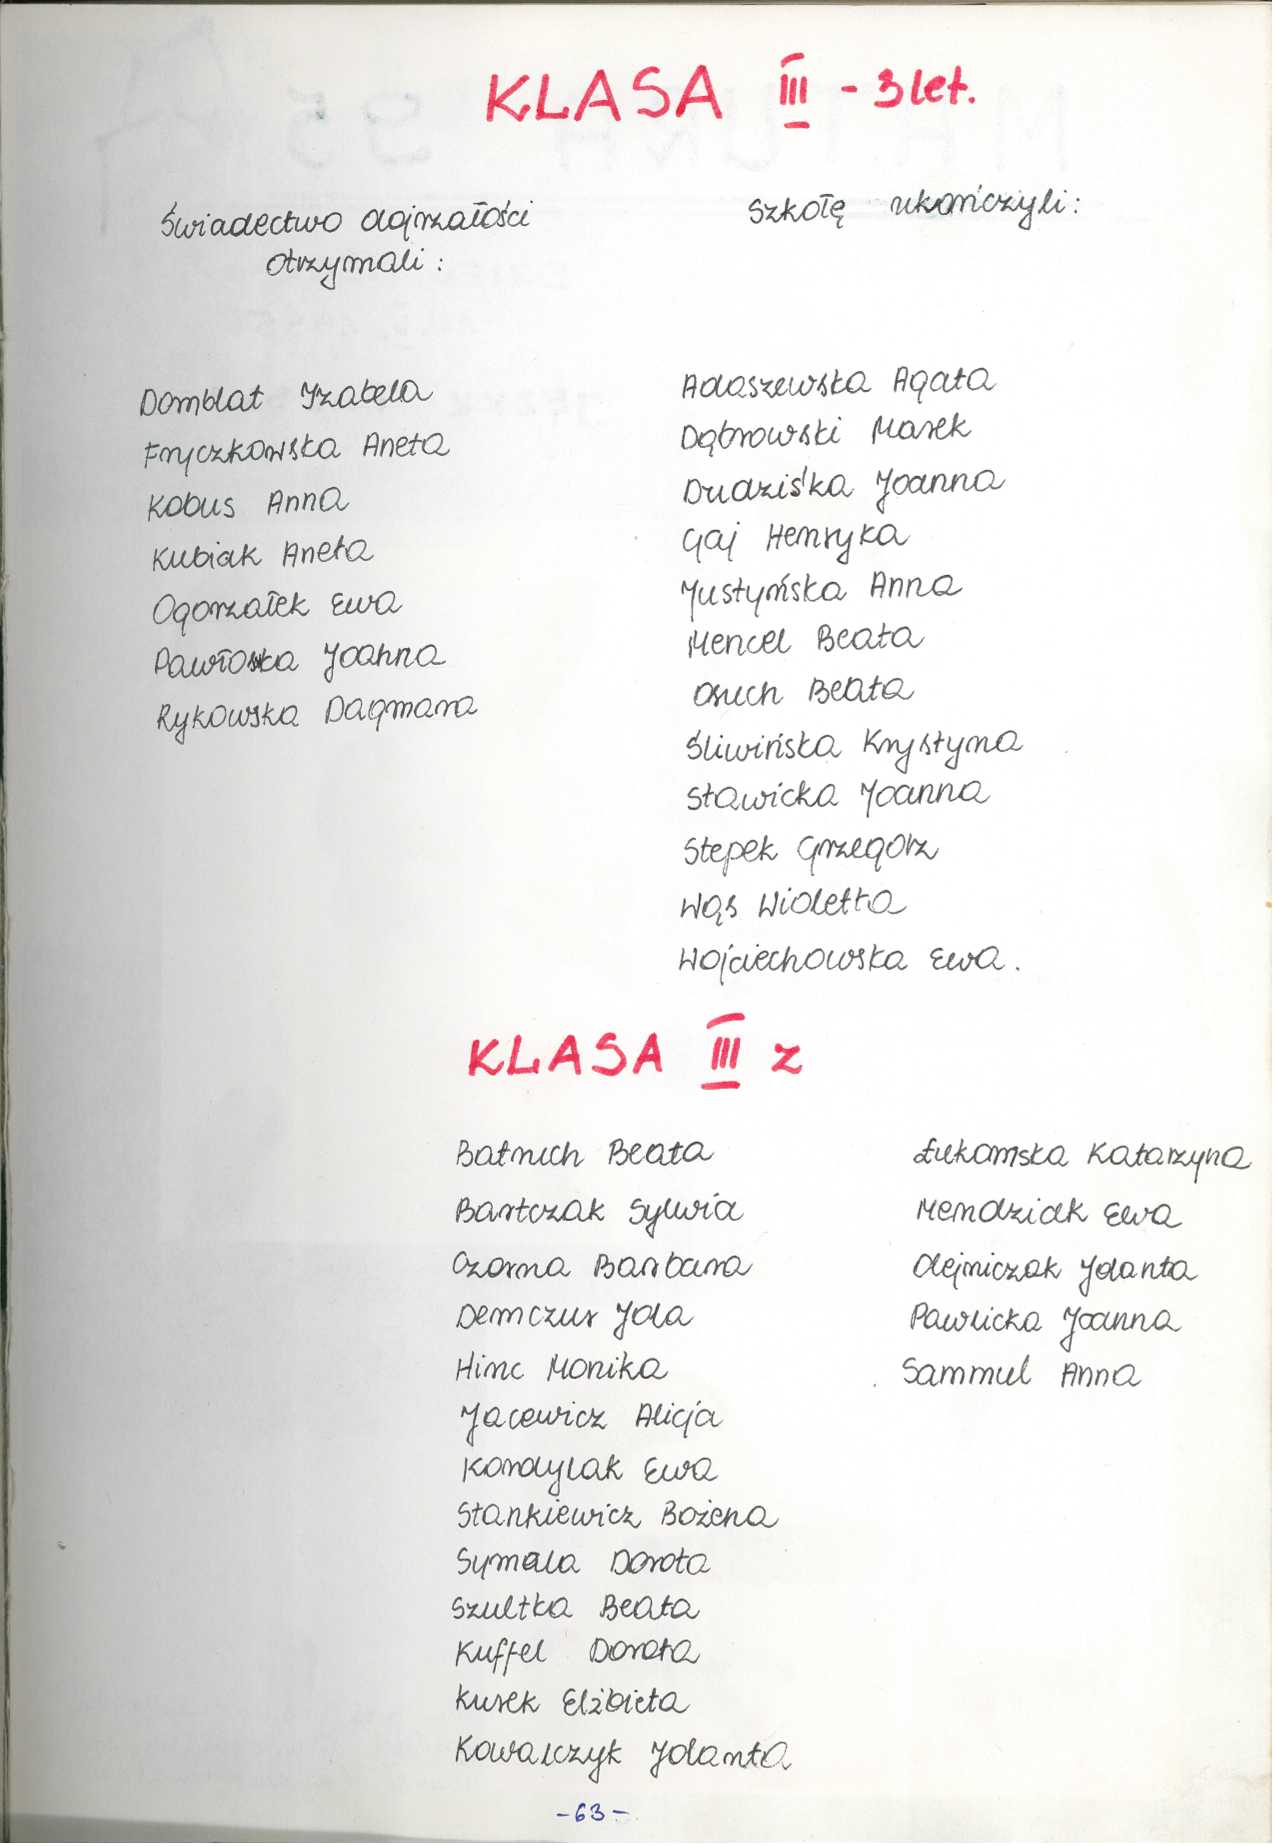 KLASA III - 3 let.
Świadectwo dojrzałości
otrzymali :
Domblat Izabela
Fryczkowska Aneta
Kobus Anna
Kubiak Aneta
Ogorzałek Ewa
Pawłoska Joanna
Rykowska Dagmara
Szkołę ukończyli :
Adaszewska Agata
Dąbrowski Marek
Dudziśka Joanna
Gaj Henryka
Justyńska Anna
Mencel Beata
Osuch Beata
Śliwińska Krystyna
Stawicka Joanna
Stepek Grzegorz
Wąs Wioletta
Wojciechowska Ewa .
KLASA III z
Batruch Beata
Bartczak Sylwia
Czarna Barbara
Demczur Jola
Hinc Monika
Jacewicz Alicja
Kardylak Ewa
Stankiewicz Bożena
Symala Dorota
Szultka Beata
Kuffel Dorota
Kurek Elżbieta
Kowalczyk Jolanta
Łukomska Katarzyna
Mendziak Ewa
Olejniczak Jolanta
Pawlicka Joanna
Sammul Anna
-63-